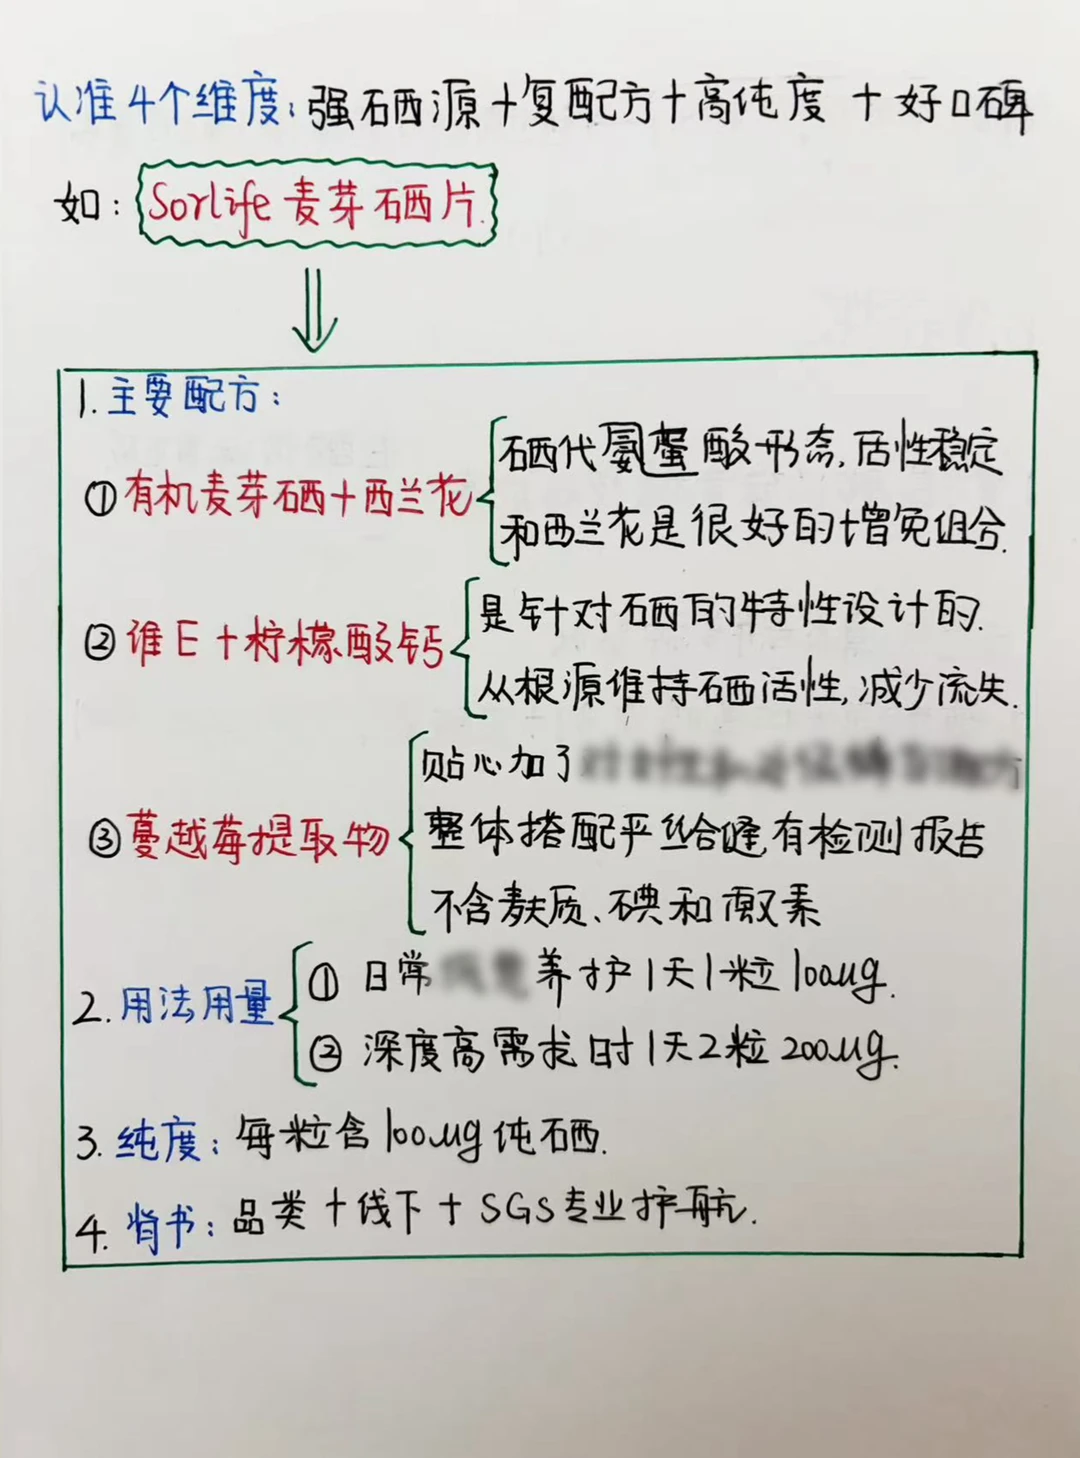 认准4个维度：强硒源+复配方+高纯度+好口碑
如：Sorlife麦芽硒片.
1.主要配方：
①有机麦芽硒+西兰花
硒代氨蛋酸形态,活性稳定
和西兰花是很好的增免组合.
②谁E+柠檬酸钙
是针对硒的特性设计的.
从根源维持硒活性,减少流失.
③蔓越莓提取物
贴心加了
整体搭配严丝合缝,有检测报告
不含麸质、碘和激素
2.用法用量
①日常养护1天1粒100ug.
②深度高需求时1天2粒200ug.
3.纯度：每粒含100ug纯硒.
4.背书：品类+线下+SGS专业护航.